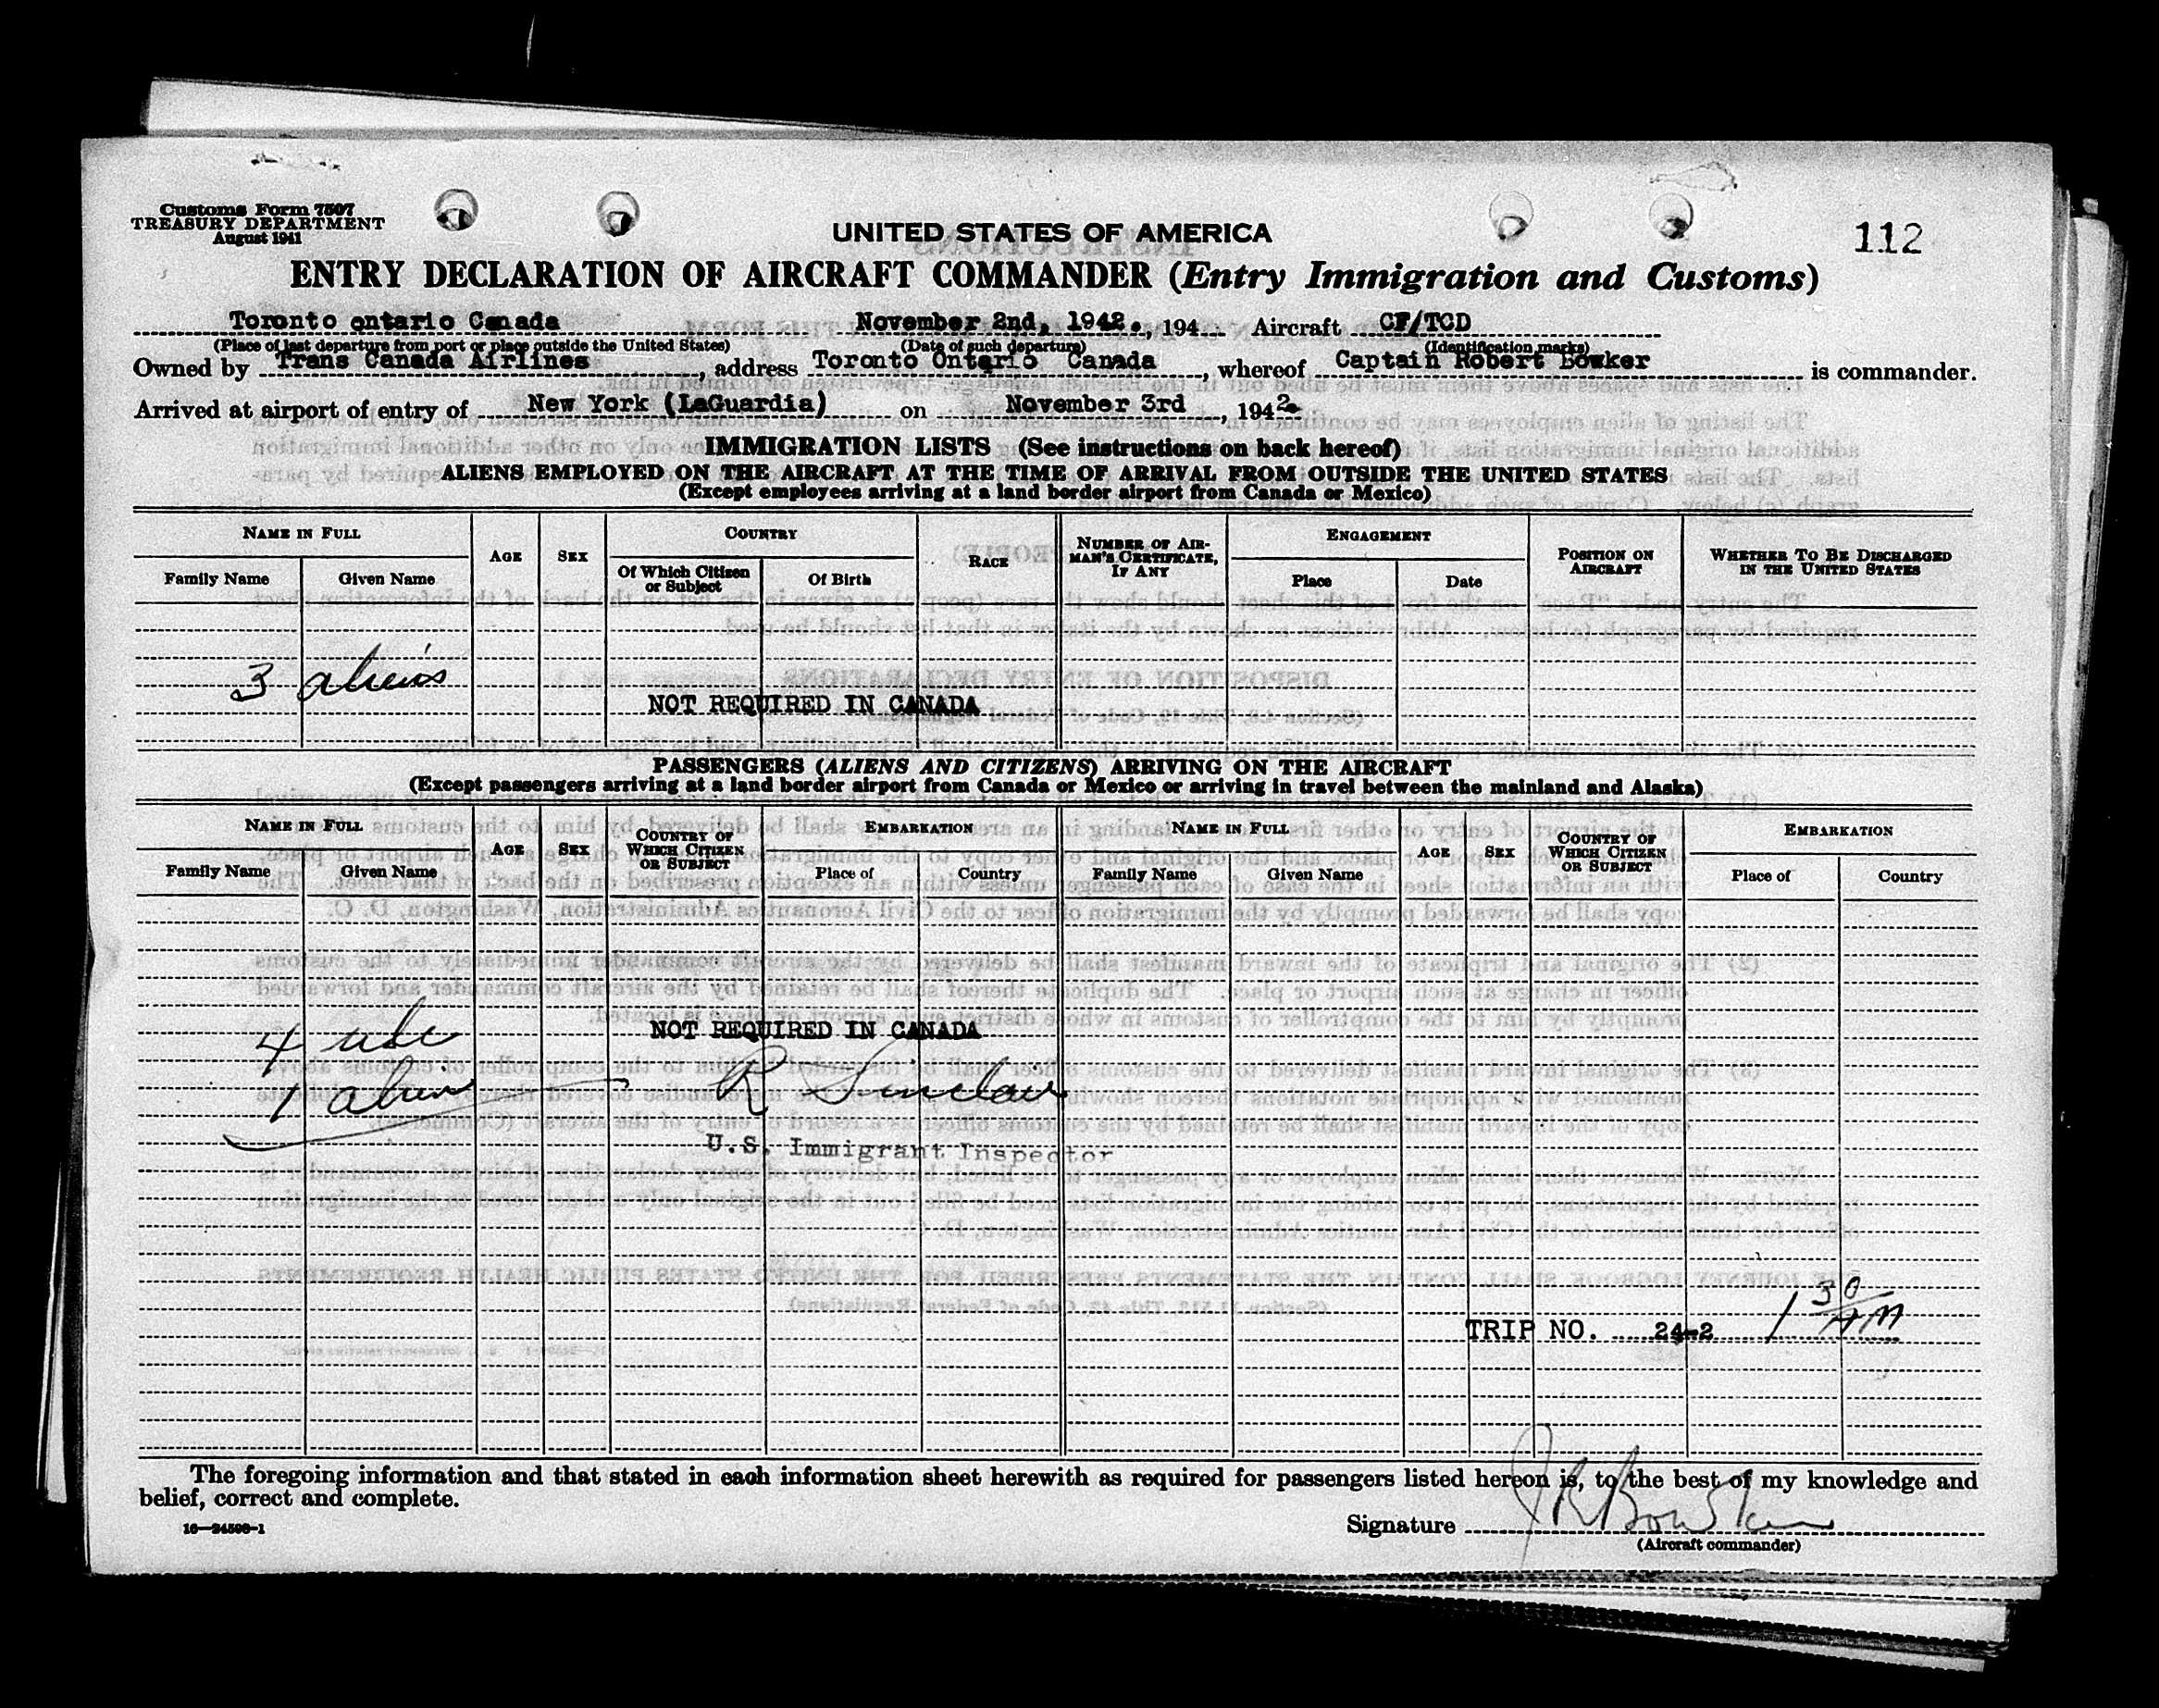 Customs Form 7507
TREASURY DEPARTMENT
August 1941
UNITED STATES OF AMERICA
112
ENTRY DECLARATION OF AIRCRAFT COMMANDER (Entry Immigration and Customs)
Toronto ontario Canada November 2nd, 1942., 194 Aircraft CF/TCD
(Place of last departure from port or place outside the United States) (Date of such departure) (Identification marks)
Owned by Trans Canada Airlines, address Toronto Ontario Canada, whereof Captain Robert Bowker is commander.
Arrived at airport of entry of New York (LaGuardia) on November 3rd, 1942
IMMIGRATION LISTS (See instructions on back hereof)
ALIENS EMPLOYED ON THE AIRCRAFT AT THE TIME OF ARRIVAL FROM OUTSIDE THE UNITED STATES
(Except employees arriving at a land border airport from Canada or Mexico)
NAME IN FULL AGE SEX COUNTRY RACE NUMBER OF AIRMAN'S CERTIFICATE, IF ANY ENGAGEMENT POSITION ON AIRCRAFT WHETHER TO BE DISCHARGED IN THE UNITED STATES
Family Name Given Name Of Which Citizen or Subject Of Birth Place Date
3 aliens
NOT REQUIRED IN CANADA
PASSENGERS (ALIENS AND CITIZENS) ARRIVING ON THE AIRCRAFT
(Except passengers arriving at a land border airport from Canada or Mexico or arriving in travel between the mainland and Alaska)
NAME IN FULL AGE SEX COUNTRY OF WHICH CITIZEN OR SUBJECT EMBARKATION NAME IN FULL AGE SEX COUNTRY OF WHICH CITIZEN OR SUBJECT EMBARKATION
Family Name Given Name Place of Country Family Name Given Name Place of Country
4 usc NOT REQUIRED IN CANADA
1 alien R Sinclair
U.S. Immigrant Inspector
TRIP NO. 24-2 1 30 AM
The foregoing information and that stated in each information sheet herewith as required for passengers listed hereon is, to the best of my knowledge and
belief, correct and complete.
16—24598-1
Signature JRBowker
(Aircraft commander)